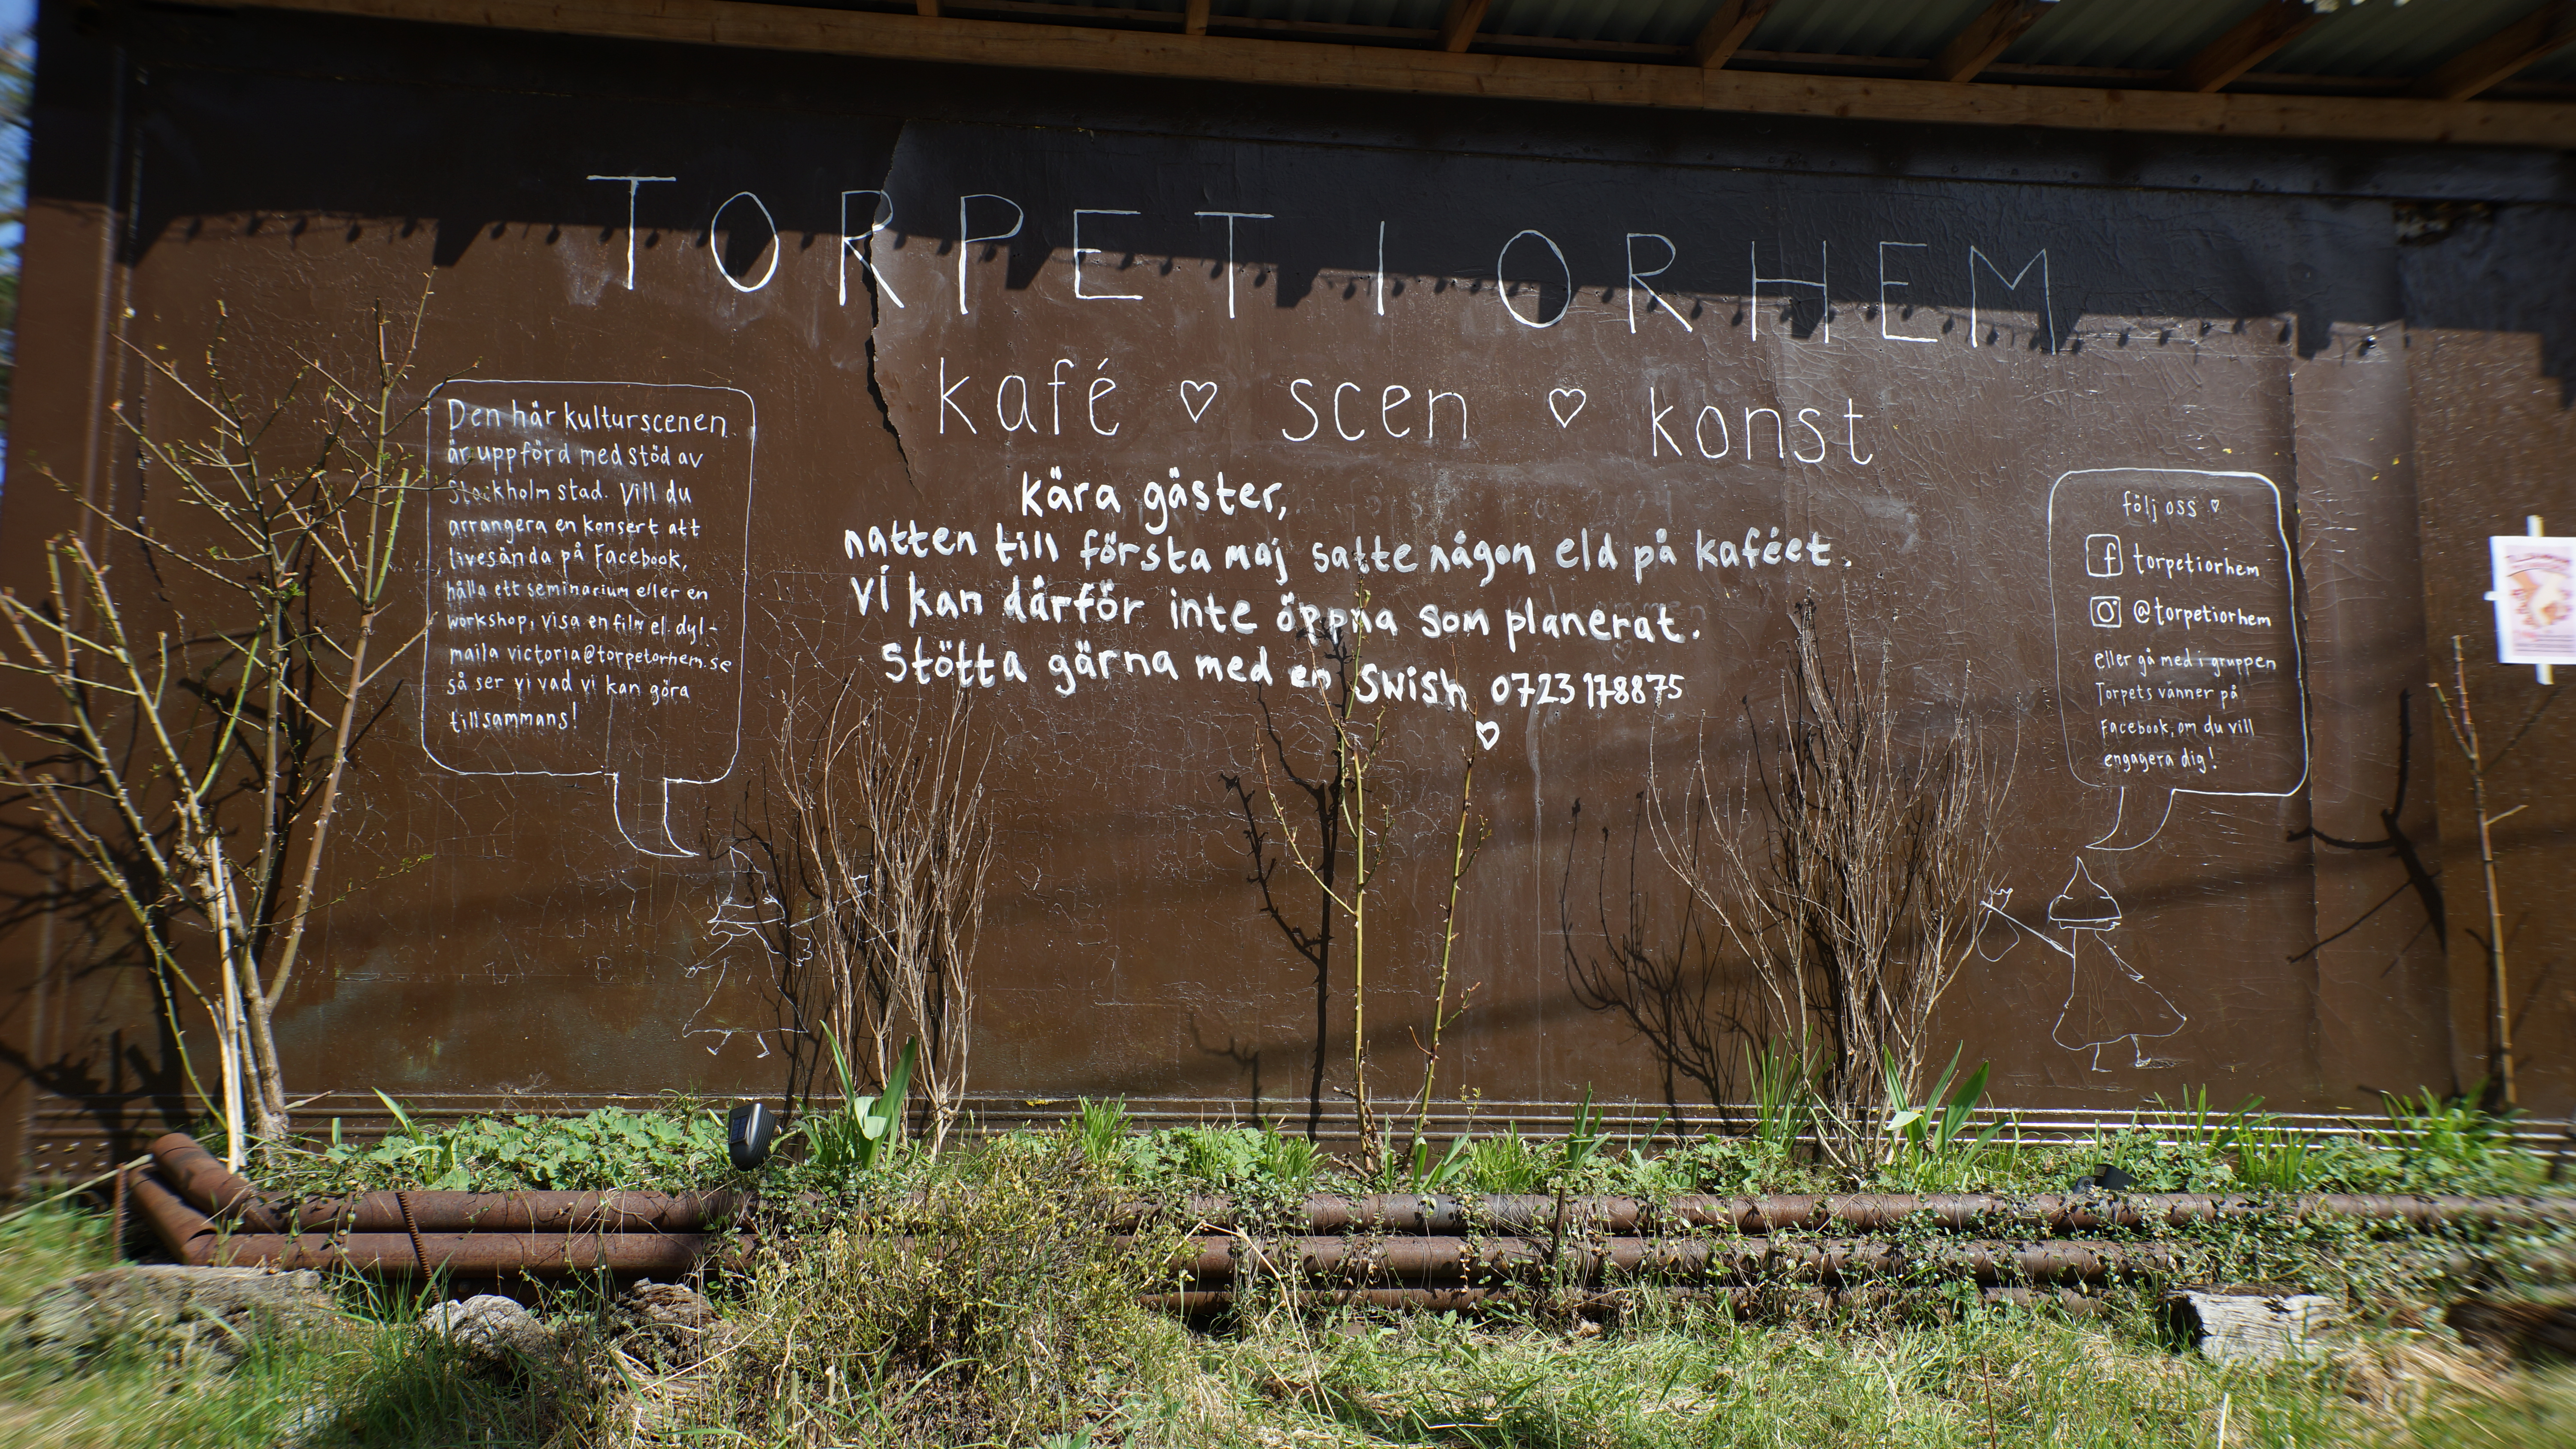 TORPET I ORHEM
kafé ♡ scen ♡ konst
Den här kulturscenen
är uppförd med stöd av
Stockholm stad. Vill du
arrangera en konsert att
livesända på Facebook,
hålla ett seminarium eller en
workshop, visa en film el. dyl-
maila victoria@torpetorhem.se
så ser vi vad vi kan göra
tillsammans!
kära gäster,
natten till första maj satte någon eld på kaféet.
Vi kan därför inte öppna som planerat.
Stötta gärna med en Swish 0723178875
♡
följ oss ♡
f torpetiorhem
@torpetiorhem
eller gå med i gruppen
Torpets vänner på
Facebook, om du vill
engagera dig!